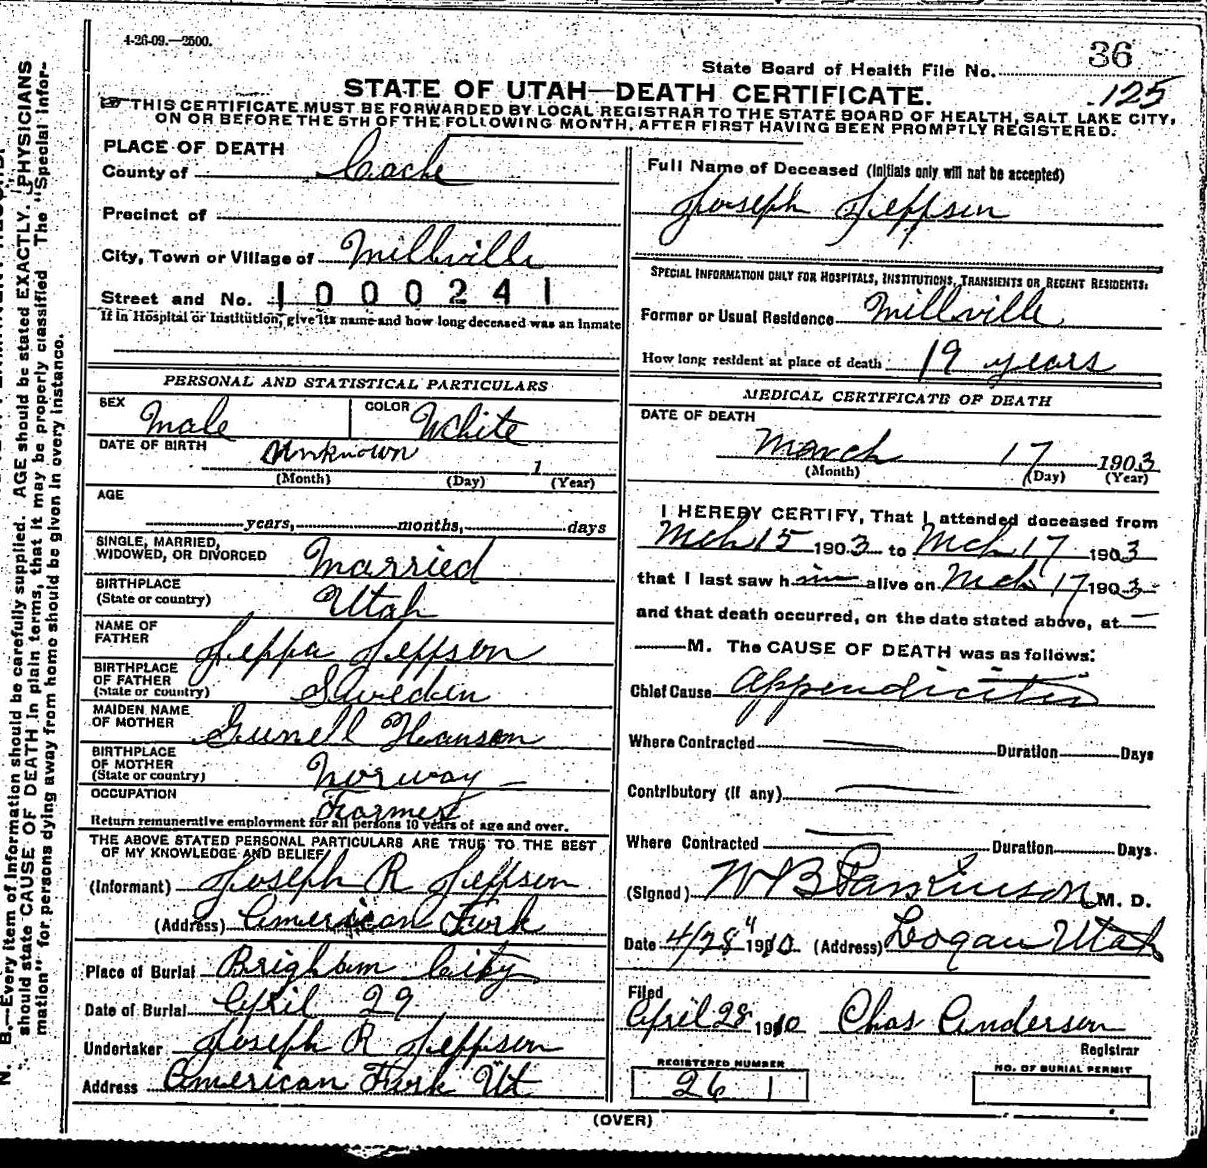 4-26-09.—2500.
36
State Board of Health File No.
125
STATE OF UTAH—DEATH CERTIFICATE.
THIS CERTIFICATE MUST BE FORWARDED BY LOCAL REGISTRAR TO THE STATE BOARD OF HEALTH, SALT LAKE CITY,
ON OR BEFORE THE 5TH OF THE FOLLOWING MONTH, AFTER FIRST HAVING BEEN PROMPTLY REGISTERED.
PLACE OF DEATH
County of Cache
Precinct of
City, Town or Village of Millville
Street and No. 1000241
If in Hospital or Institution, give its name and how long deceased was an inmate
PERSONAL AND STATISTICAL PARTICULARS
SEX Male COLOR White
DATE OF BIRTH Unknown 1
(Month) (Day) (Year)
AGE
years, months, days
SINGLE, MARRIED,
WIDOWED, OR DIVORCED Married
BIRTHPLACE
(State or country) Utah
NAME OF
FATHER Jeppa Jeppson
BIRTHPLACE
OF FATHER
(State or country) Sweden
MAIDEN NAME
OF MOTHER Gunell Hanson
BIRTHPLACE
OF MOTHER
(State or country) Norway
OCCUPATION Farmer
Return remunerative employment for all persons 10 years of age and over.
THE ABOVE STATED PERSONAL PARTICULARS ARE TRUE TO THE BEST
OF MY KNOWLEDGE AND BELIEF
(Informant) Joseph R Jeppson
(Address) American Furk
Place of Burial Brigham City
Date of Burial April 29
Undertaker Joseph R Jeppson
Address American Furk Ut
Full Name of Deceased (Initials only will not be accepted)
Joseph Jeppsen
SPECIAL INFORMATION ONLY FOR HOSPITALS, INSTITUTIONS, TRANSIENTS OR RECENT RESIDENTS:
Former or Usual Residence Millville
How long resident at place of death 19 years
MEDICAL CERTIFICATE OF DEATH
DATE OF DEATH
March 17 1903
(Month) (Day) (Year)
I HEREBY CERTIFY, That I attended deceased from
Mch 15 1903 to Mch 17 1903
that I last saw him alive on Mch 17 1903
and that death occurred, on the date stated above, at
M. The CAUSE OF DEATH was as follows:
Chief Cause Appendicitis
Where Contracted Duration Days
Contributory (if any)
Where Contracted Duration Days
(Signed) W B Parkinson M. D.
Date 4/28" 1910 (Address) Logan Utah
Filed
April 28 1910 Chas Anderson
Registrar
REGISTERED NUMBER
26
NO. OF BURIAL PERMIT
(OVER)
N. B.—Every item of information should be carefully supplied. AGE should be stated EXACTLY. PHYSICIANS
should state CAUSE OF DEATH in plain terms, that it may be properly classified. The "Special Infor-
mation" for persons dying away from home should be given in every instance.